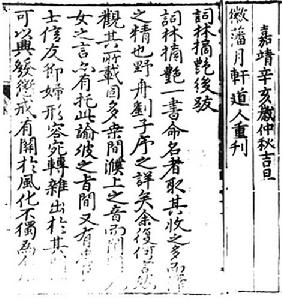 嘉靖辛亥歲仲秋吉旦
徽藩月軒道人重刊
詞林摘艷後跋
詞林摘艷一書命名者取其收之多而擇
之精也野舟劉子序之詳矣余復何言
觀其所載固多桑間濮上之音而閨
女之言亦有托此諭彼之旨間又有
士信友仰婦形容宛轉雜出於其
可以興發懲戒有關於風化不獨爲